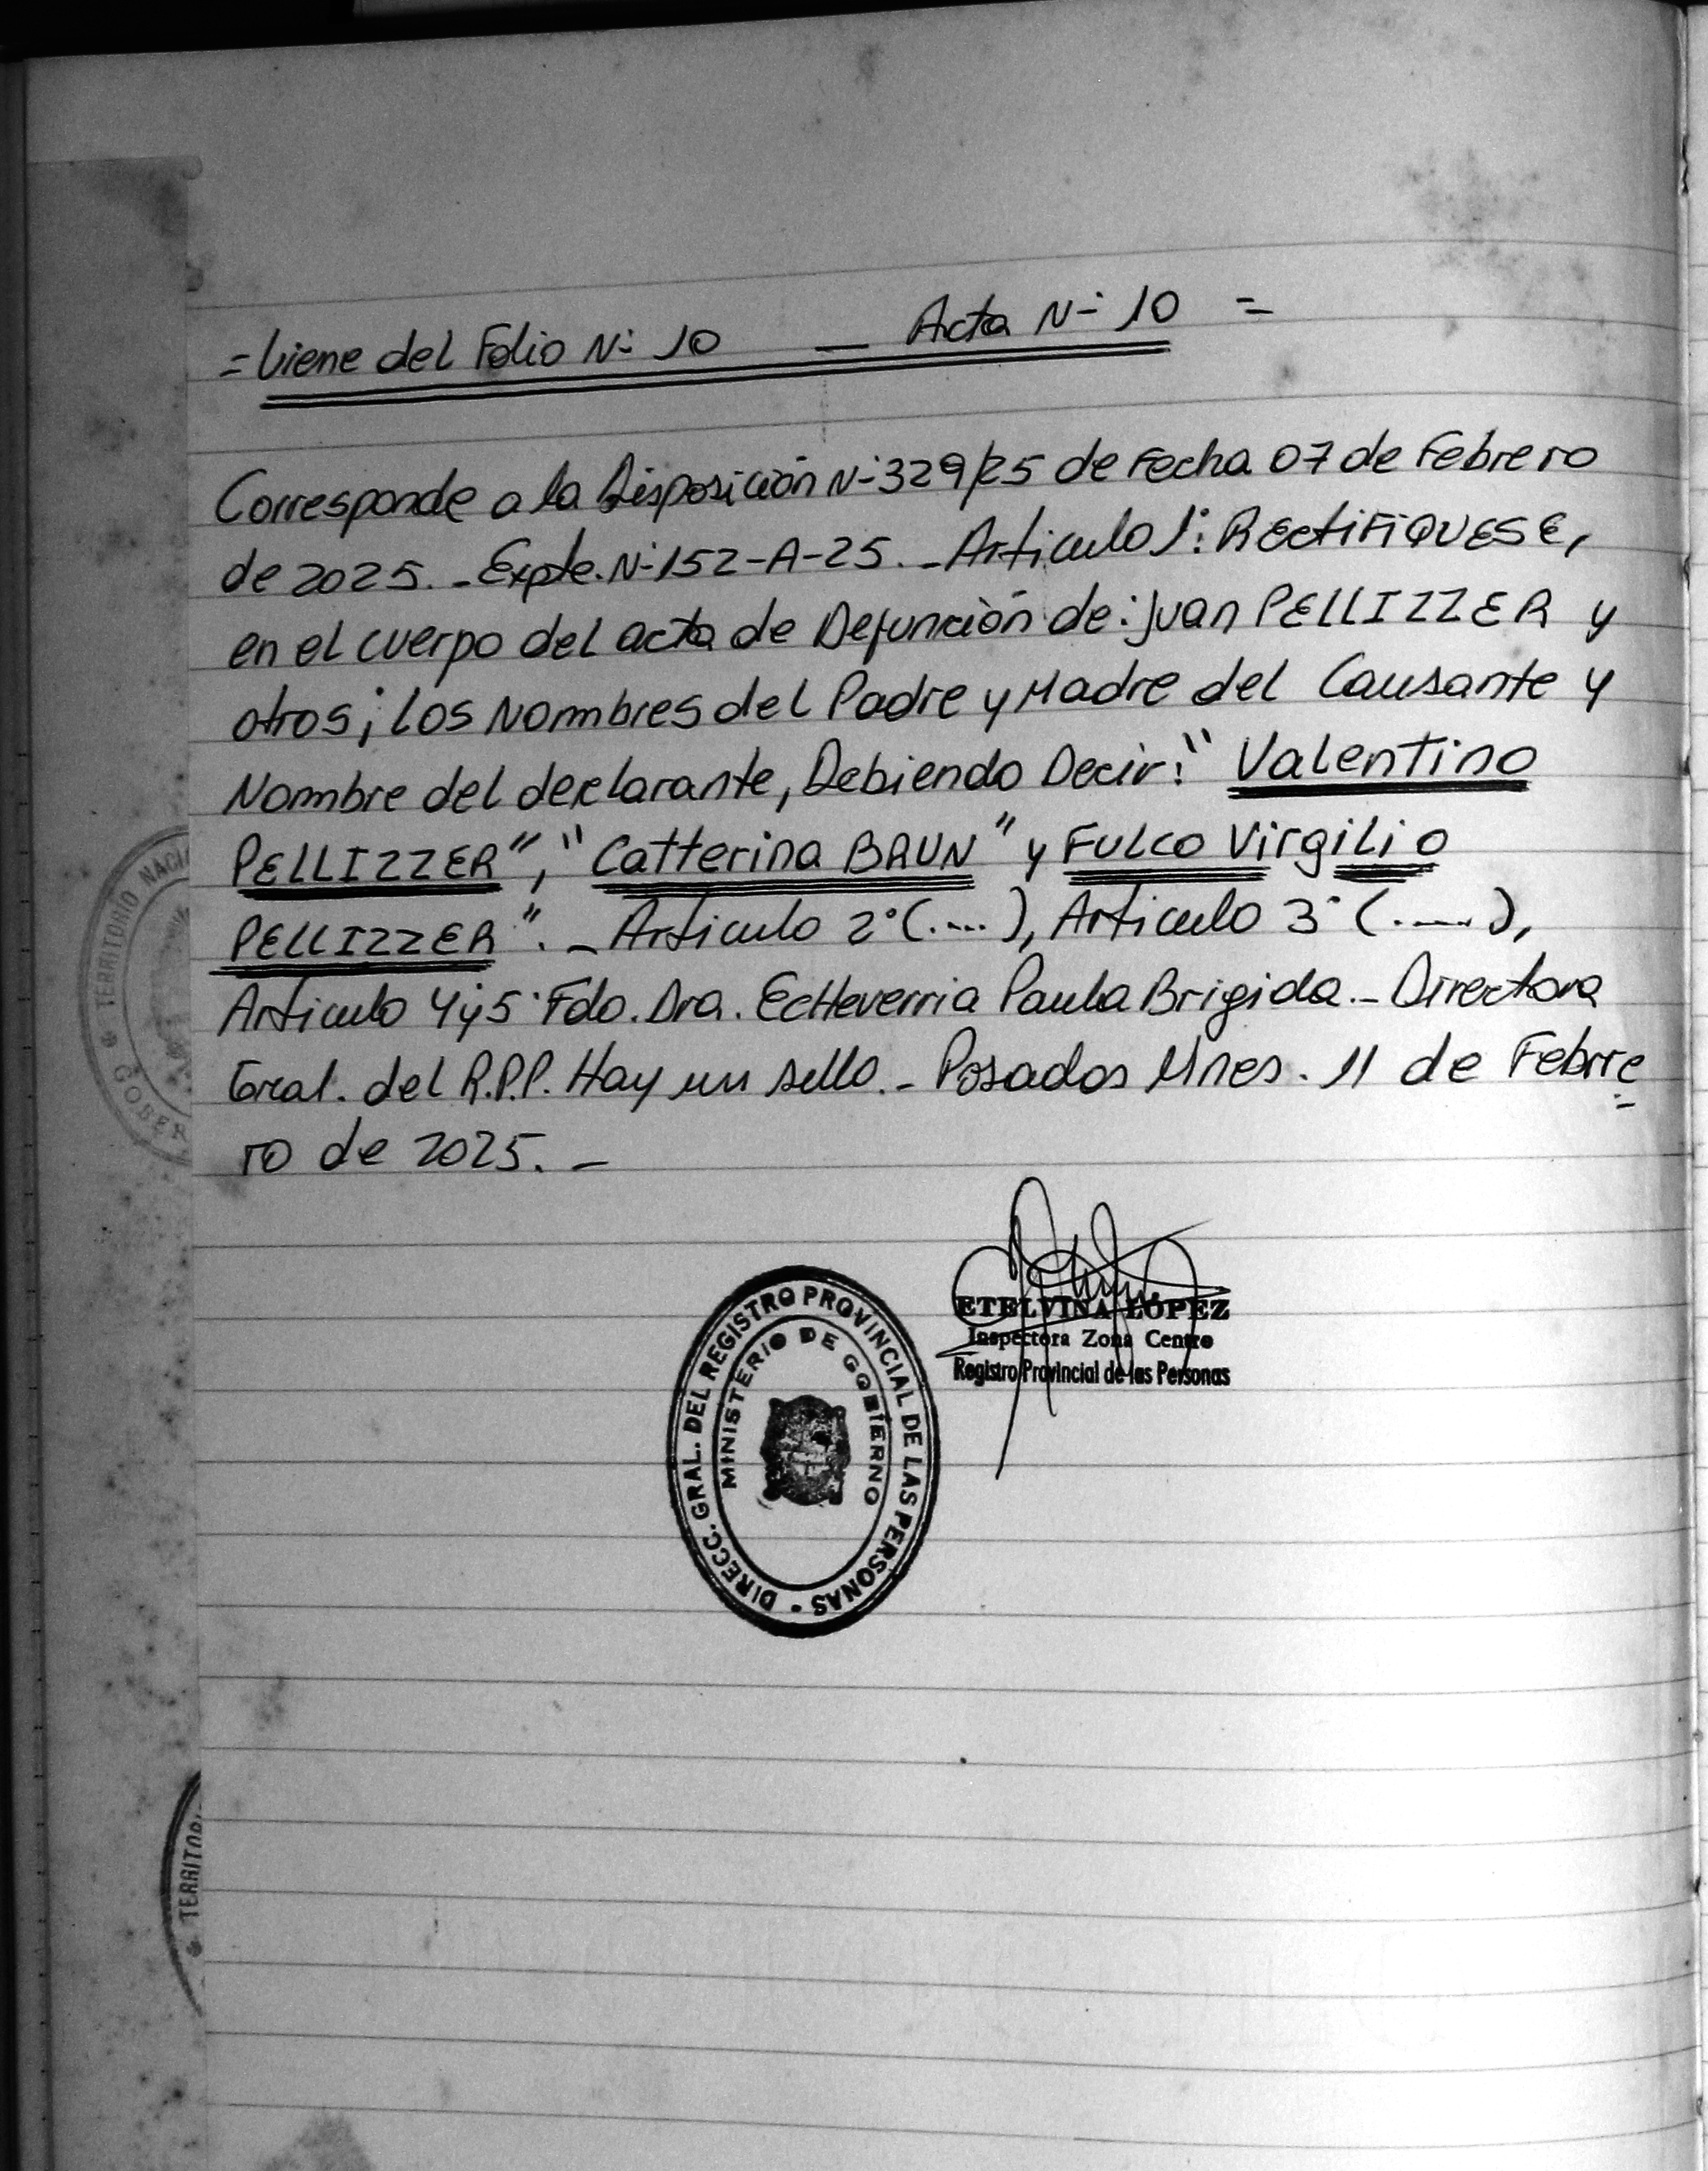 =Viene del Folio Nº 10 — Acta Nº 10 =
Corresponde a la Disposición Nº 329/25 de Fecha 07 de Febrero
de 2025. - Expte. Nº 152-A-25. - Articulo 1º: RECtiFiQUESE,
en el cuerpo del acta de Defunción de: Juan PELLIZZER y
otros; Los Nombres del Padre y Madre del Causante y
Nombre del declarante, Debiendo Decir: "Valentino
PELLIZZER", "Catterina BRUN" y FULCO Virgilio
PELLIZZER". - Articulo 2º (....), Articulo 3º (.....),
Articulo 4 y 5º Fdo. Dra. EcHeverria Paula Brigida. - Directora
Gral. del R.P.P. Hay un sello. - Posadas Mnes. 11 de Febrre
ro de 2025. -
ETELVINA LOPEZ
Inspectora Zona Centro
Registro Provincial de las Personas
DIRECC. GRAL. DEL REGISTRO PROVINCIAL DE LAS PERSONAS -
MINISTERIO DE GOBIERNO
TERRITORIO NACI
GOBER
TERRITOR